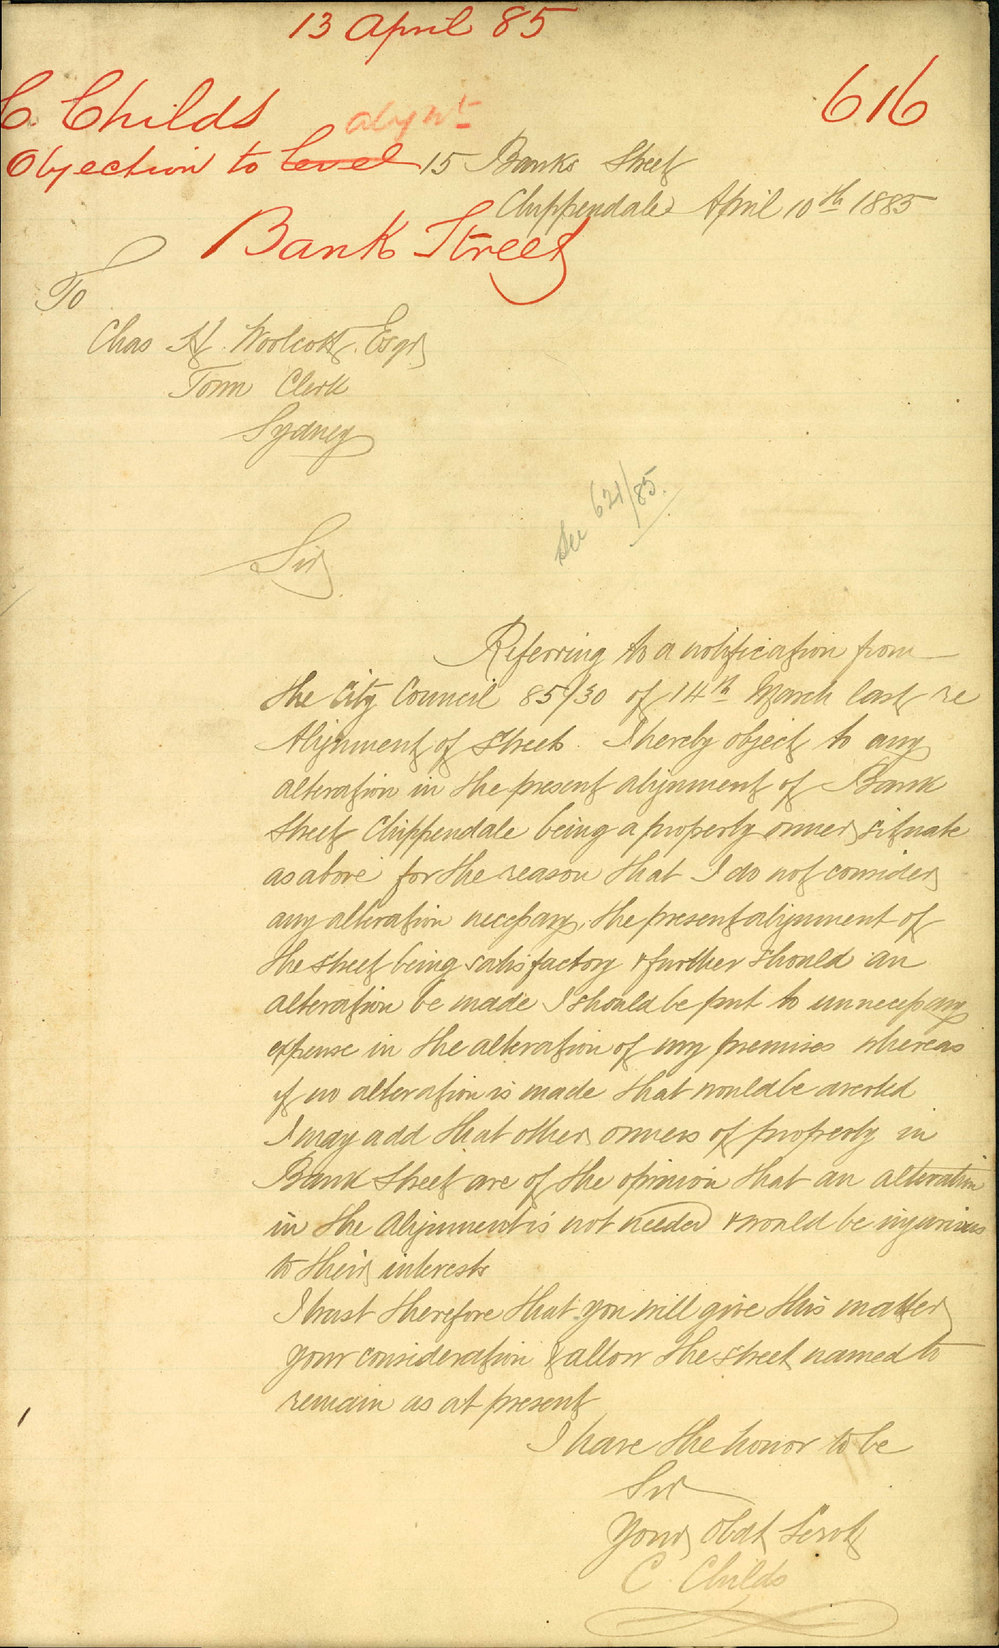 13 April 85
616
C. Childs
alignt
Objection to level
Bank Street
15 Banks Street
Chippendale April 10th 1885
To
Chas H. Woolcott Esqr
Town Clerk
Sydney
See 621/85.
Sir
Referring to a notification from
the City Council 85/30 of 14th March last re
Alignment of Streets. I hereby object to any
alteration in the present alignment of Bank
Street Chippendale being a property owner situate
as above for the reason that I do not consider
any alteration necessary, the present alignment of
the street being satisfactory & further should an
alteration be made I should be put to unnecessary
expense in the alteration of my premises whereas
if no alteration is made that would be averted
I may add that other owners of property in
Bank Street are of the opinion that an alteration
in the alignment is not needed & would be injurious
to their interests
I trust therefore that you will give this matter
your consideration & allow the street named to
remain as at present
I have the honor to be
Sir
Your Obdt Servt
C. Childs